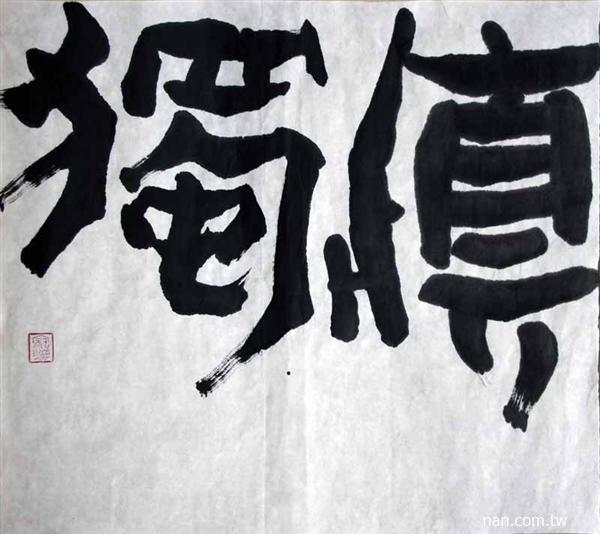 慎獨
nan.com.tw